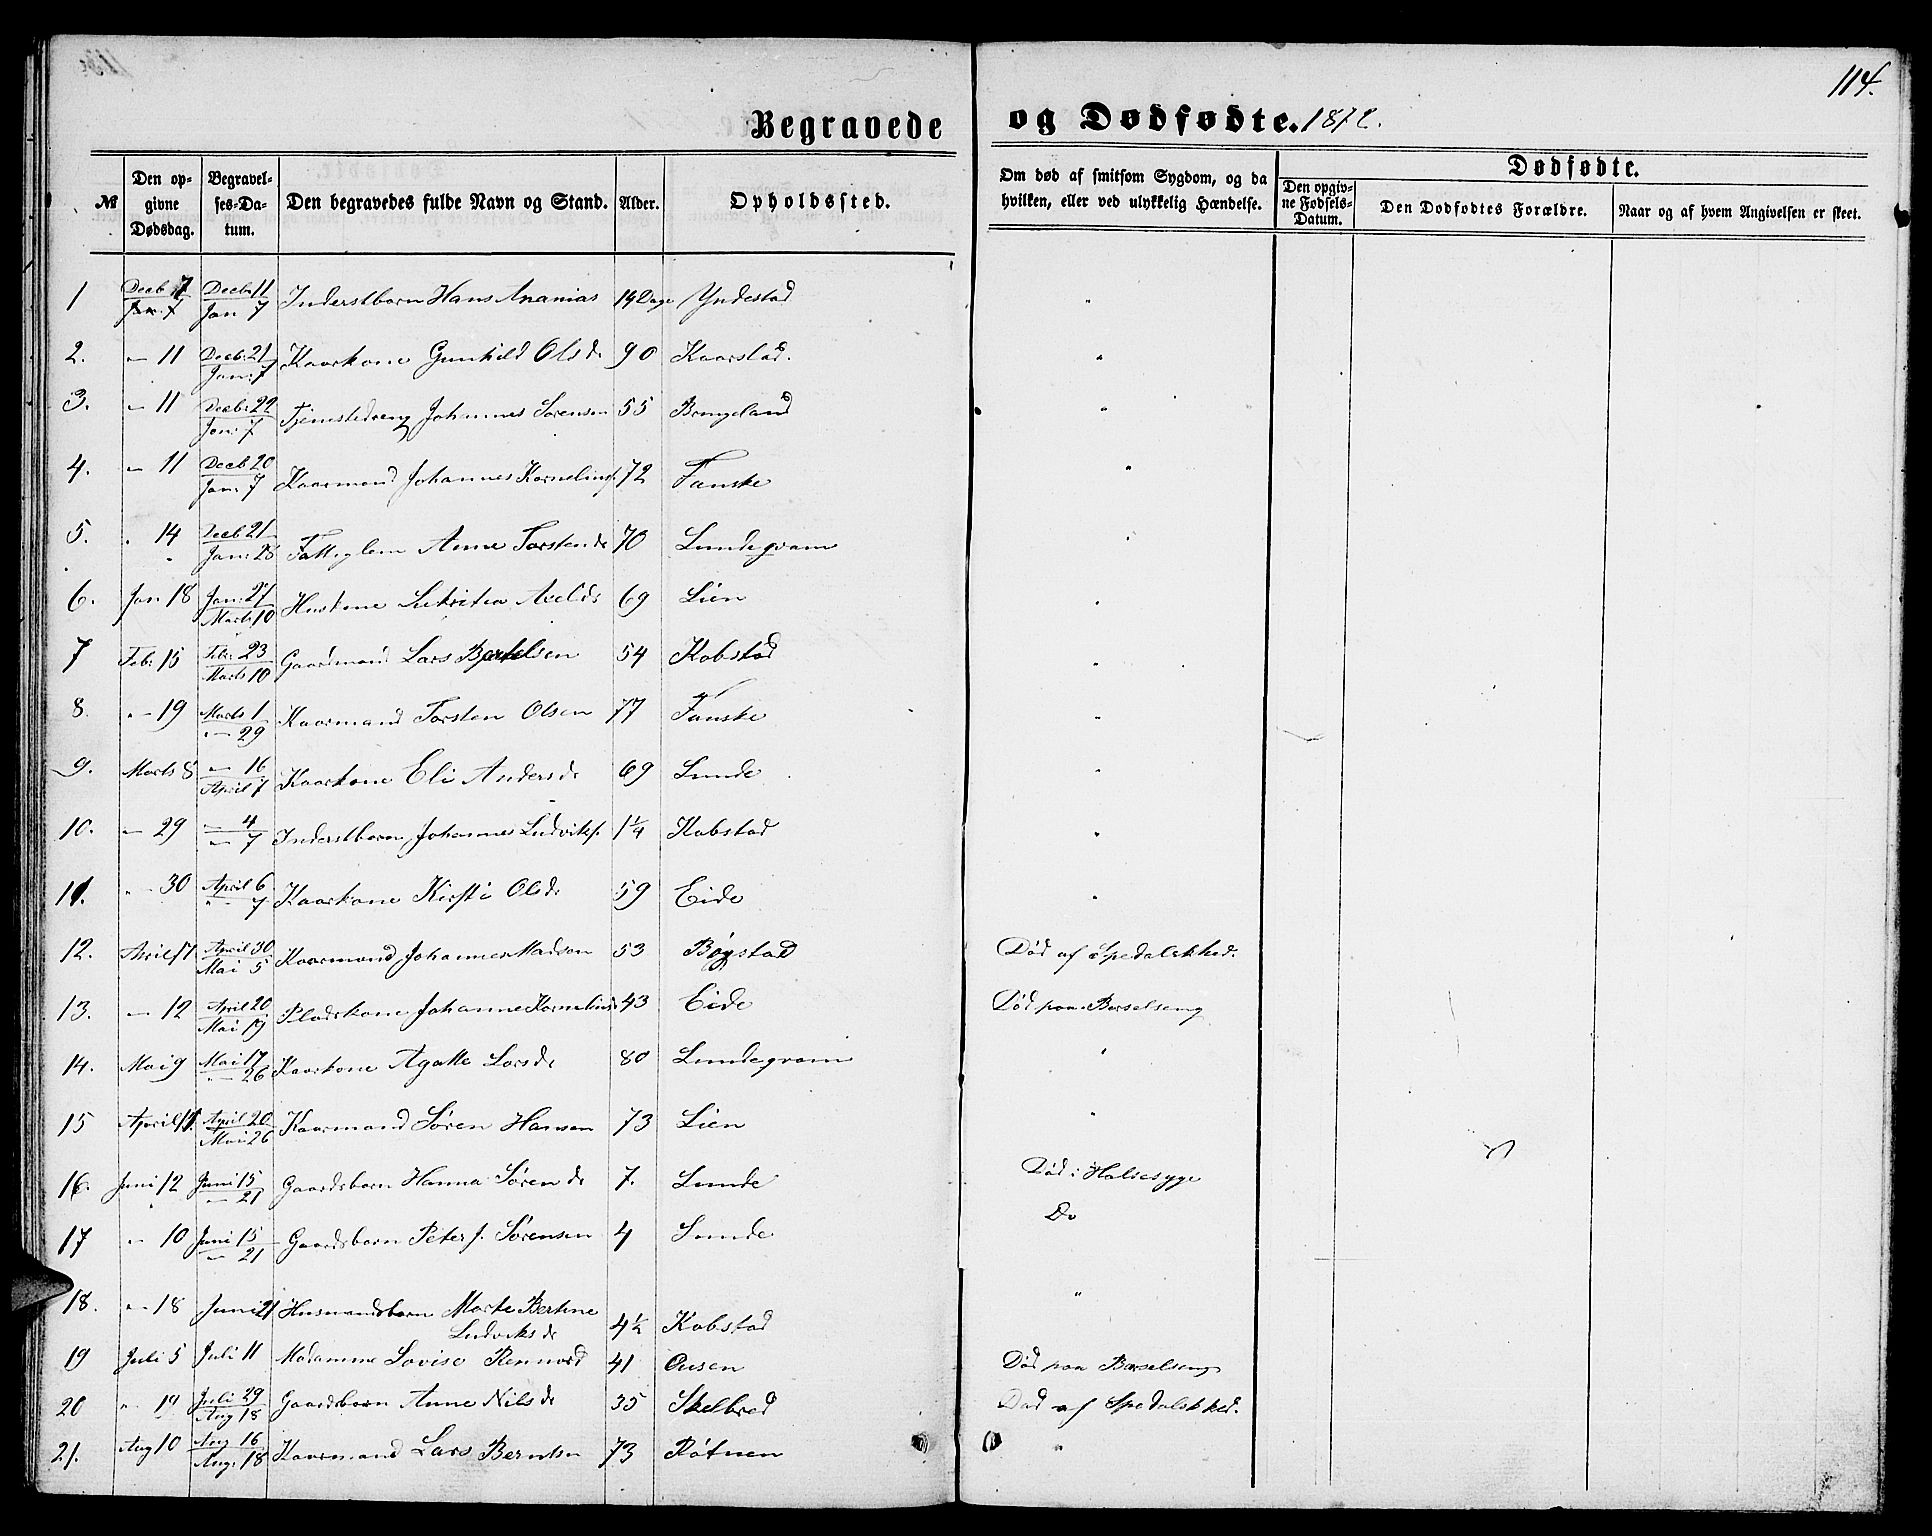 114.
Begravede og Dødfødte. 1872.
№ Den opgivne Dødsdag. Begravelses-Datum. Den begravedes fulde Navn og Stand. Alder. Opholdssted. Om død af smitsom Sygdom, og da hvilken, eller ved ulykkelig Hændelse. Dødfødte. Den opgivne Fødsels-Datum. Den Dødfødtes Forældre. Naar og af hvem Angivelsen er skeet.
1 Decb 7 Decbr 11 / Jan 7 Inderstbarn Hans Ananias 14 Dage Yndestad "
2. " 11 Decb: 21 / Jan: 7 Kaarkone Gunhild Olsd: 90 Kaarstad. "
3. " 11 Decb: 22 / Jan: 7 Tjenestedreng Johannes Sørensen 55 Bongeland "
4. " 11 Decb 20 / Jan: 7 Kaarmand Johannes Kornelius. 72 Fanske "
5. " 14 Decb 21 / Jan: 28 Fattiglem Anne Torstend: 70 Lundegram "
6. Jan 18 Jan: 27 / Marts 10 Huskone Axelds 69 Lien "
7 Feb: 15 Feb: 23 / Marts 10 Gaardmand Lars Bertelsen 54 Kobstad "
8. " 19 Marts 1 / " 29 Kaarmand Torsten Olsen 77 Fanske "
9. Marts 8 " 16 / April 7 Kaarkone Eli Andersd: 69 Lunde "
10. " 29 " 4 / " 7 Inderstbarn Johannes Ludviks. 1¼ Kobstad "
11. " 30 April 6 / " 7 Kaarkone Kirsti Olsd: 59 Eide "
12. April 17 April 30 / Mai 5 Kaarmand Johannes Madsen 53 Bøgstad Død af Spedalskhed.
13. " 12 April 20 / Mai 19 Pladskone Johanne Kornelius 43 Eide Død paa Barselseng
14. Mai 9 Mai 17 / " 26 Kaarkone Agatte Larsd: 80 Lundegram "
15 April 11 April 20 / Mai 26 Kaarmand Søren Hansen 73 Lien "
16. Juni 12 Juni 15 / " 21 Gaardsbarn Hanna Sørensd: 7. Lunde Død i Halssyge
17 " 10 Juni 15 / " 21 Gaardsbarn Peter J. Sørensen 4 Lunde Do
18. " 18 Juni 21 Husmandsbarn Marte Bertine
Ludviksd: 4½ Kobstad "
19 Juli 5 Juli 11 Madamme Lovise Rennord 41 Ousen Død paa Barselseng
20 " 19 Juli 29 / Aug 18 Gaardsbarn Anne Nilsd: 35 Skelbred Død af Spedalskhed.
21. Aug 10 Aug 16 / Aug: 18 Kaarmand Lars Berntsen 73 Røtnen "